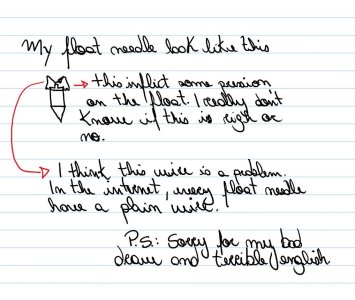 My float needle look like this
this inflict some pression
on the float. I really don't
know if this is rigth or
no.
I think this wire is a problem.
In the internet, every float needle
have a plain wire.
P.S: Sorry for my bad
draw and terrible english